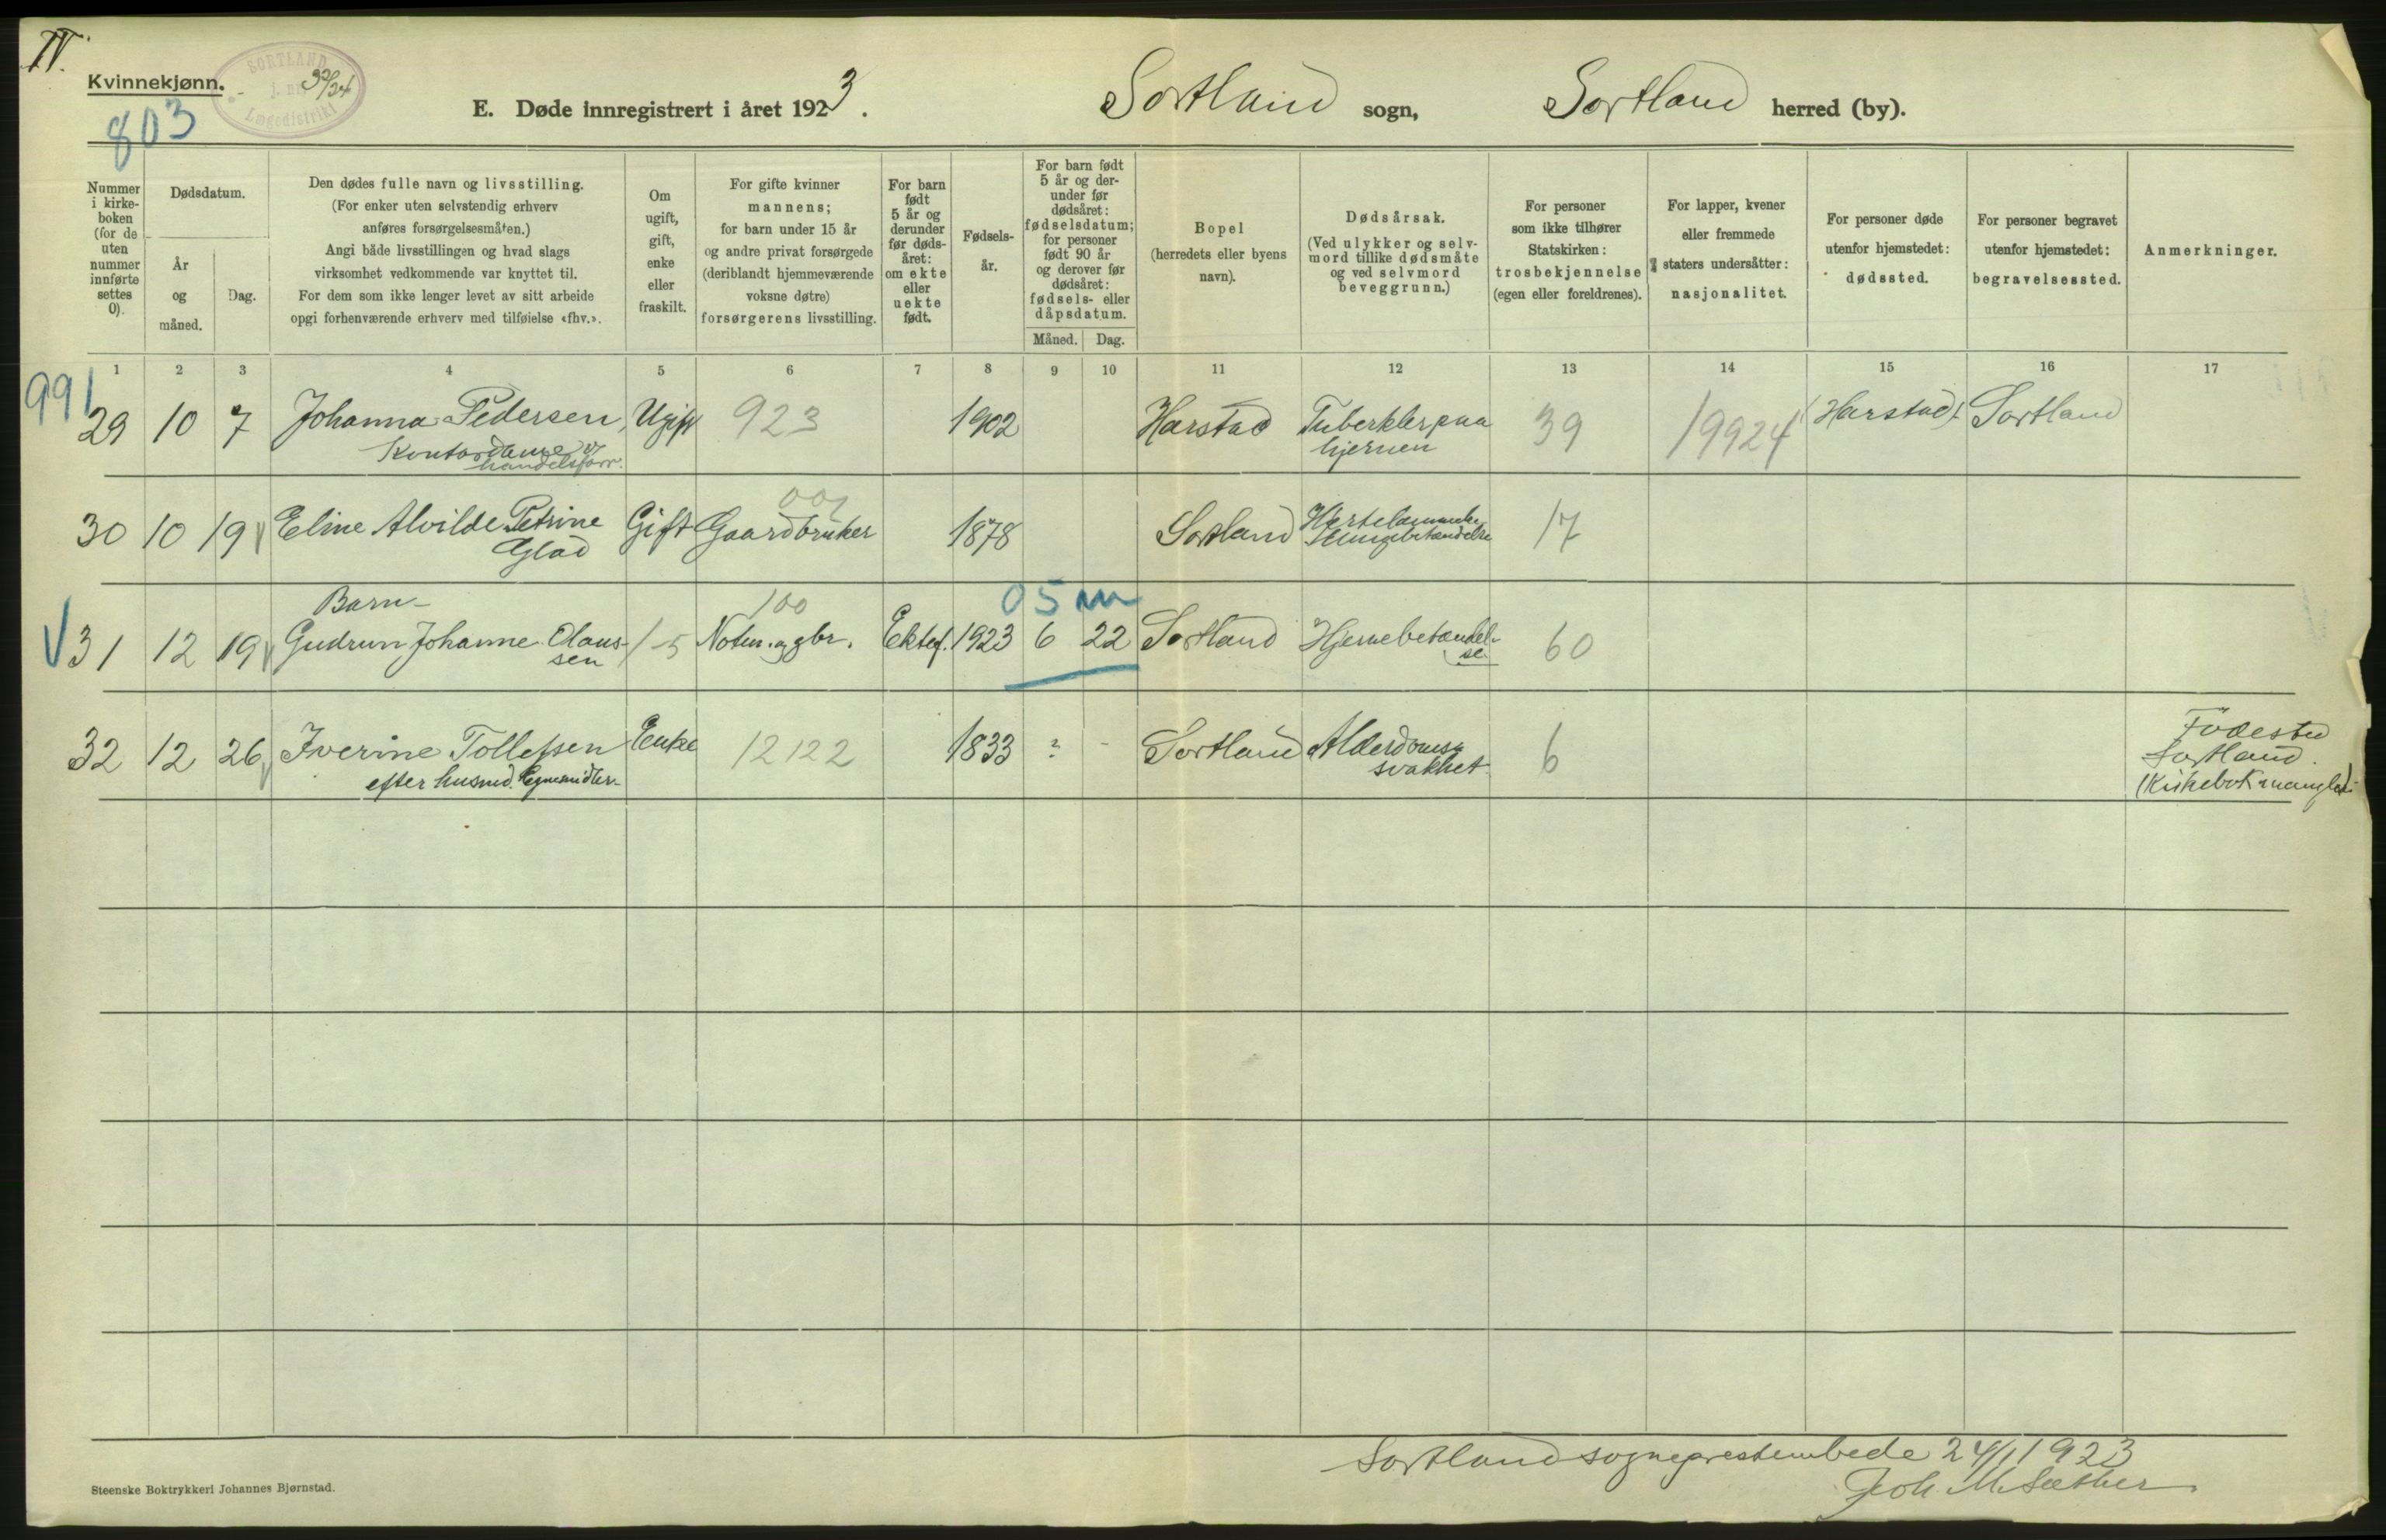 IV.
Kvinnekjønn.
SORTLAND
j. nr. 32/24
Lægedistrikt
803
E. Døde innregistrert i året 1923.
Sortland sogn,
Sortland herred (by).
Nummer
i kirke-
boken
(for de
uten
nummer
innførte
settes
0).
Dødsdatum.
År
og
måned.
Dag.
Den dødes fulle navn og livsstilling.
(For enker uten selvstendig erhverv
anføres forsørgelsesmåten.)
Angi både livsstillingen og hvad slags
virksomhet vedkommende var knyttet til.
For dem som ikke lenger levet av sitt arbeide
opgi forhenværende erhverv med tilføielse «fhv.».
Om
ugift,
gift,
enke
eller
fraskilt.
For gifte kvinner
mannens;
for barn under 15 år
og andre privat forsørgede
(deriblandt hjemmeværende
voksne døtre)
forsørgerens livsstilling.
For barn
født
5 år og
derunder
før døds-
året:
om ekte
eller
uekte
født.
Fødsels-
år.
For barn født
5 år og der-
under før
dødsåret:
fødselsdatum;
for personer
født 90 år
og derover før
dødsåret:
fødsels- eller
dåpsdatum.
Måned. Dag.
Bopel
(herredets eller byens
navn).
Dødsårsak.
(Ved ulykker og selv-
mord tillike dødsmåte
og ved selvmord
beveggrunn.)
For personer
som ikke tilhører
Statskirken:
trosbekjennelse
(egen eller foreldrenes).
For lapper, kvener
eller fremmede
staters undersåtter:
nasjonalitet.
For personer døde
utenfor hjemstedet:
dødssted.
For personer begravet
utenfor hjemstedet:
begravelsessted.
Anmerkninger.
1 2 3 4 5 6 7 8 9 10 11 12 13 14 15 16 17
991
29 10 7 Johanna Pedersen, Ugift 923 1902 Harstad Tuberkler paa 39 19924 Harstad Sortland
Kontordame v/ hjernen
handelsforr.
002
30 10 19 Eline Alvilde Petrine Gift Gaardbruker 1878 Sortland 17
Glad
Barn 100 05m
31 12 19 Gudrun Johanne Olaus- 1-5 Notm. og gbr. Ektef. 1923 6 22 Sortland Hjernebetændel- 60
sen se.
32 12 26 Iverine Tollefsen Enke 12122 1833 ? - Sortland Alderdoms- 6 Födested
efter husmd. Egne midler svakhet Sortland.
(Kirkebok mangler)
Sortland sogneprestembede 24/1 1923
Joh M. Sæther
Steenske Boktrykkeri Johannes Bjørnstad.